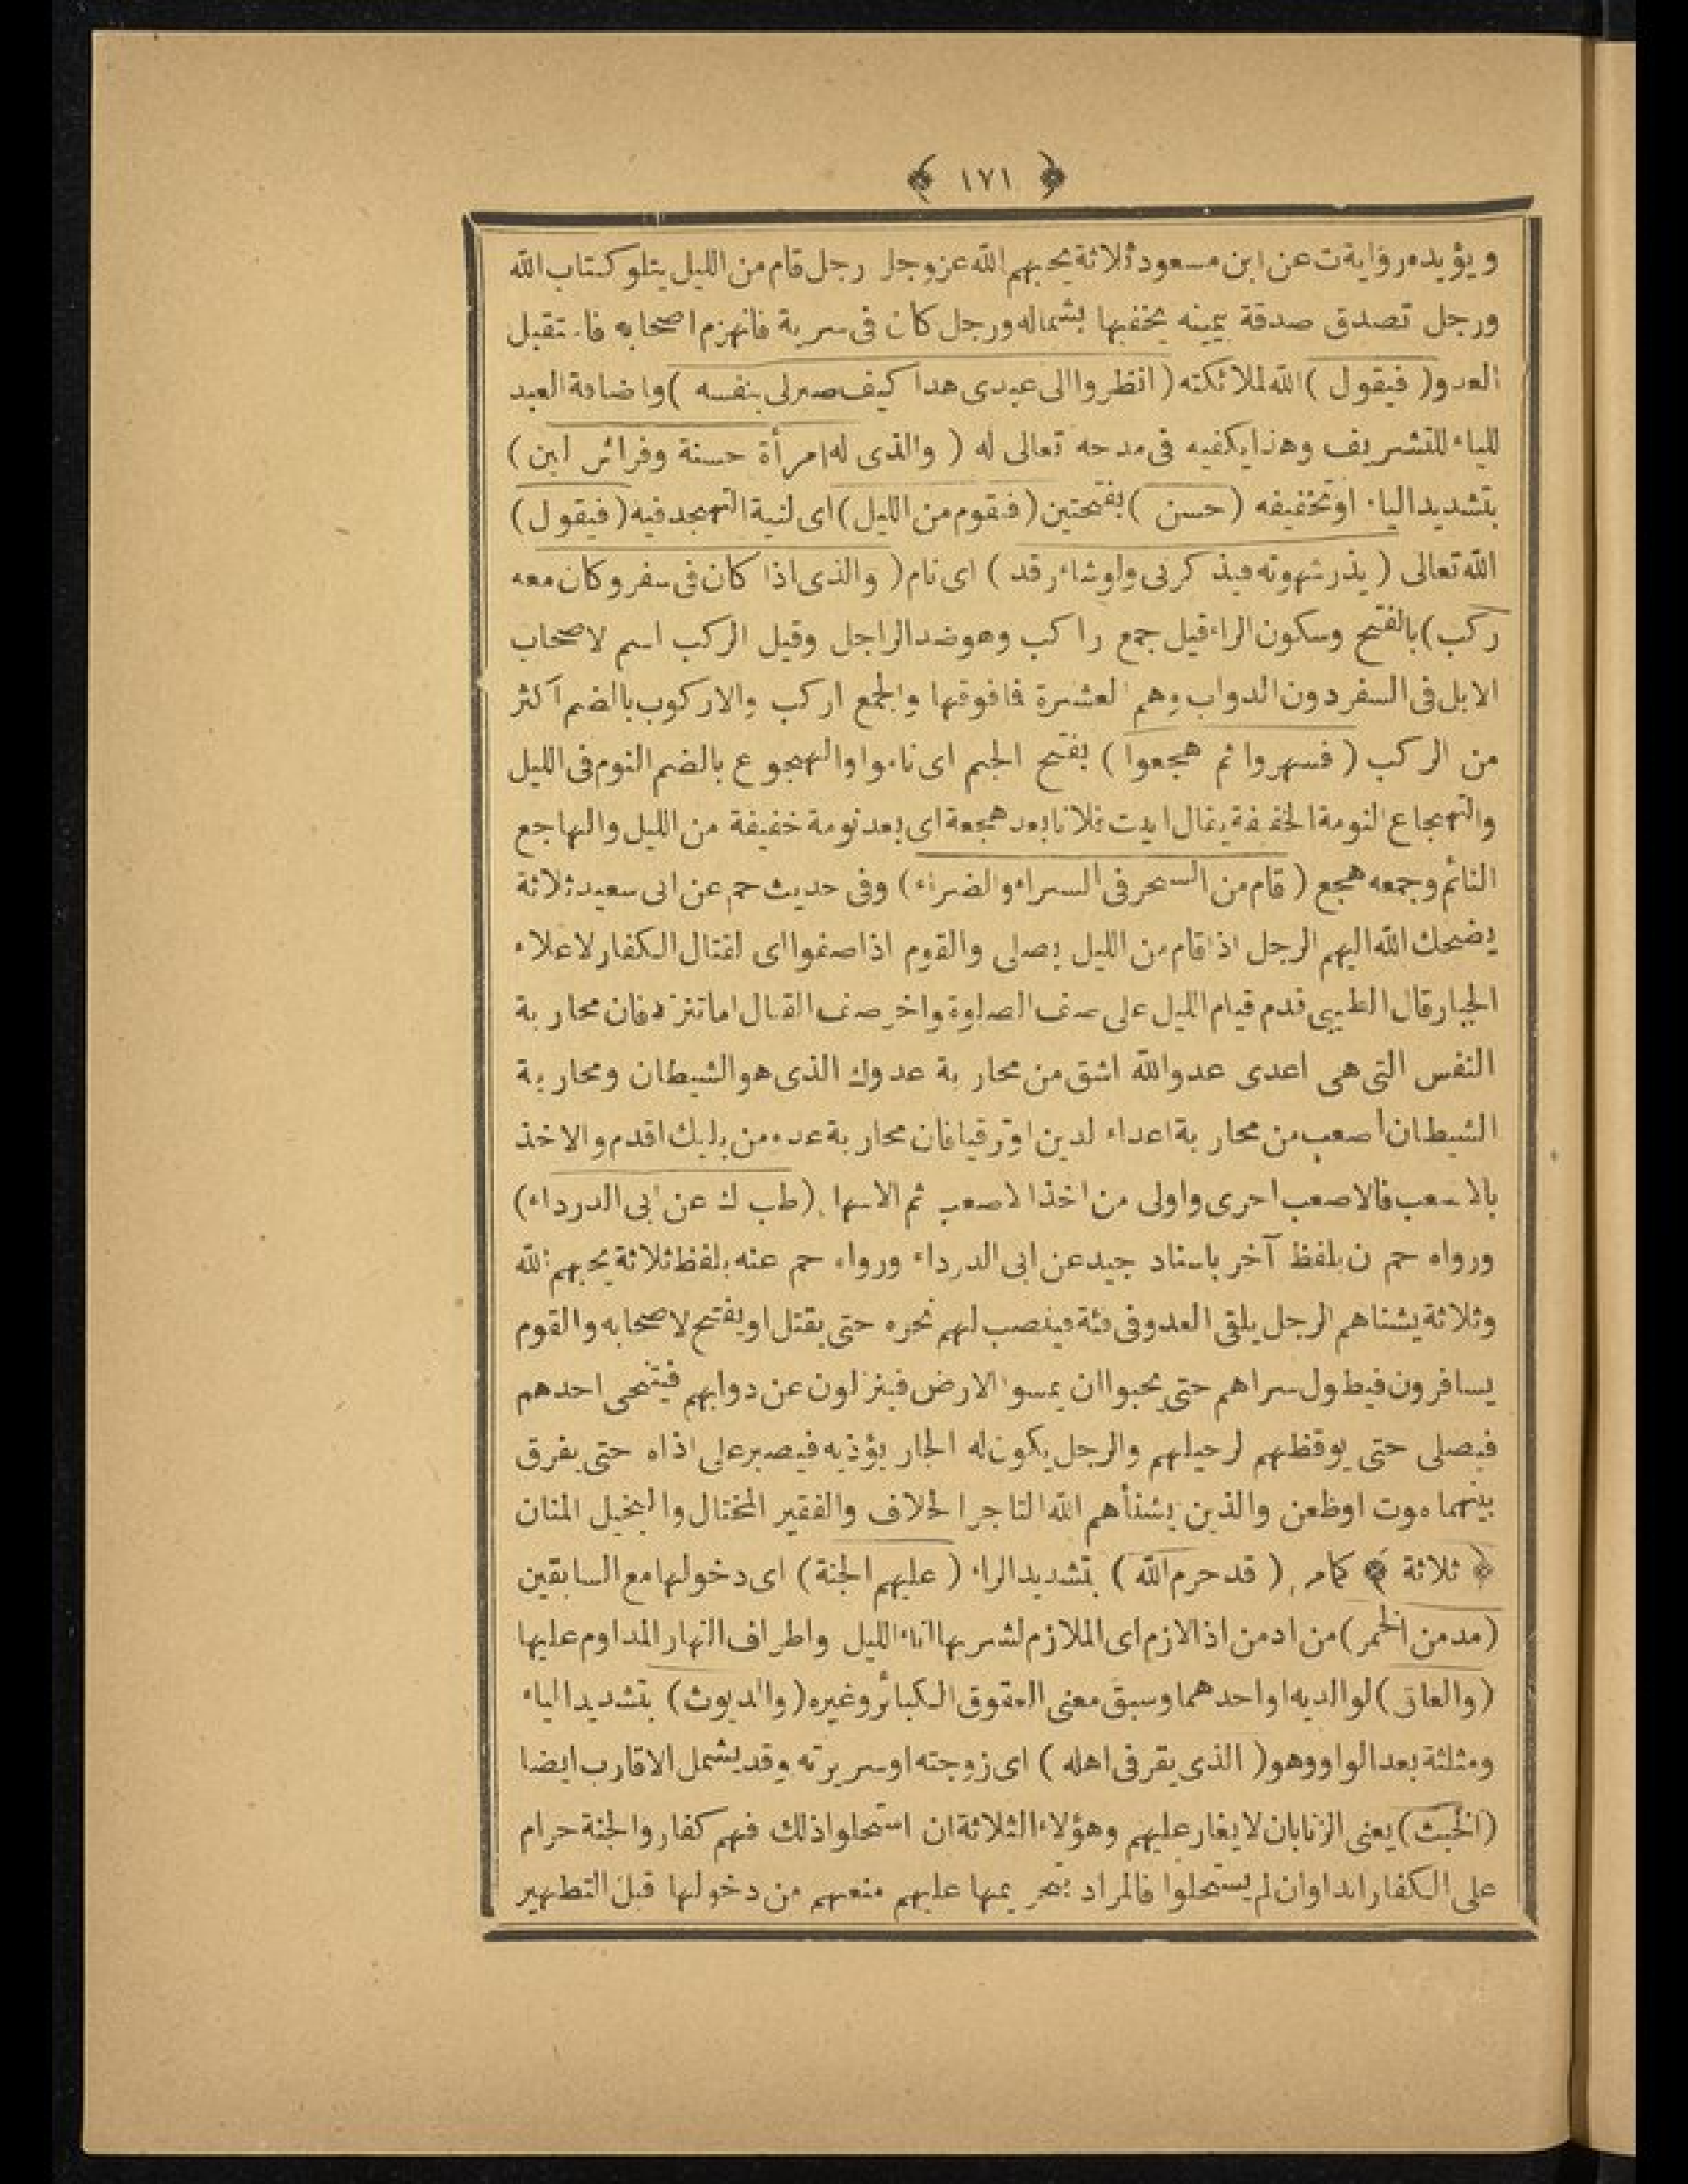 ﴿ ١٧١ ﴾
ويؤيده رواية ت عن ابن مسعود ثلاثة يحبهم الله عزوجل رجل قام من الليل يتلو كتاب الله
ورجل تصدق صدقة بيمينه يخفيها بشماله ورجل كان فى سرية فانهزم اصحابه فاستقبل
العدو ( فيقول ) الله لملائكته ( انظروا الى عبدى هذا كيف صبر لى بنفسه ) واضافة العبد
للياء للتشريف وهذا يكفيه فى مدحه تعالى له ( والذى له امرأة حسنة وفراش لين )
بتشديد الياء اوتخفيفه ( حسن ) بفتحتين ( فيقوم من الليل ) اى لنية التهجد فيه ( فيقول )
الله تعالى ( يذر شهوته فيذكرنى ولوشاء رقد ) اى نام ( والذى اذا كان فى سفر وكان معه
ركب ) بالفتح وسكون الراء قيل جمع راكب وهو ضد الراجل وقيل الركب اسم لاصحاب
الابل فى السفر دون الدواب وهم العشرة فافوقها والجمع اركب والاركوب بالضم اكثر
من الركب ( فسهروا ثم هجعوا ) بفتح الجيم اى ناموا والهجوع بالضم النوم فى الليل
والتهجاع النومة الخفيفة يقال اتيت فلانا بعد هجعة اى بعد نومة خفيفة من الليل والهاجع
النائم وجمعه هجع ( قام من السحر فى السراء والضراء ) وفى حديث حم عن ابى سعيد ثلاثة
يضحك الله اليهم الرجل اذا قام من الليل يصلى والقوم اذا صفوا اى لقتال الكفار لاعلاء
الجبار قال الطيبى قدم قيام الليل على صف الصلوة واخر صف القتال اما تنزلا فان محاربة
النفس التى هى اعدى عدو الله اشق من محاربة عدوك الذى هو الشيطان ومحاربة
الشيطان اصعب من محاربة اعداء الدين اوترقيا فان محاربة عدو من يليك اقدم والاخذ
بالاصعب فالاصعب احرى واولى من اخذ الاصعب ثم الاسهل ( طب ك عن ابى الدرداء )
ورواه حم ن بلفظ آخر باسناد جيد عن ابى الدرداء ورواه حم عنه بلفظ ثلاثة يحبهم الله
وثلاثة يشناهم الرجل يلقى العدو فى فئة فينصب لهم نحره حتى يقتل او يفتح لاصحابه والقوم
يسافرون فيطول سراهم حتى يحبوا ان يمسوا الارض فينزلون عن دوابهم فيتنحى احدهم
فيصلى حتى يوقظهم لرحيلهم والرجل يكون له الجار يؤذيه فيصبر على اذاه حتى يفرق
بينهما موت اوظعن والذين يشنأهم الله التاجر الحلاف والفقير المختال والبخيل المنان
﴿ ثلاثة ﴾ كامر ( قد حرم الله ) بتشديد الراء ( عليهم الجنة ) اى دخولها مع السابقين
( مدمن الخمر ) من ادمن اذا لازم اى الملازم لشربها اناء الليل واطراف النهار المداوم عليها
( والعاق ) لوالديه او احدهما وسبق معنى العقوق الكبائر وغيره ( والديوث ) بتشديد الياء
ومثلثة بعد الواو وهو ( الذى يقر فى اهله ) اى زوجته اوسريرته وقد يشمل الاقارب ايضا
( الخبث ) يعنى الزنا بان لا يغار عليهم وهؤلاء الثلاثة ان استحلوا ذلك فهم كفار والجنة حرام
على الكفار ابدا وان لم يستحلوا فالمراد بتحريمها عليهم منعهم من دخولها قبل التطهير